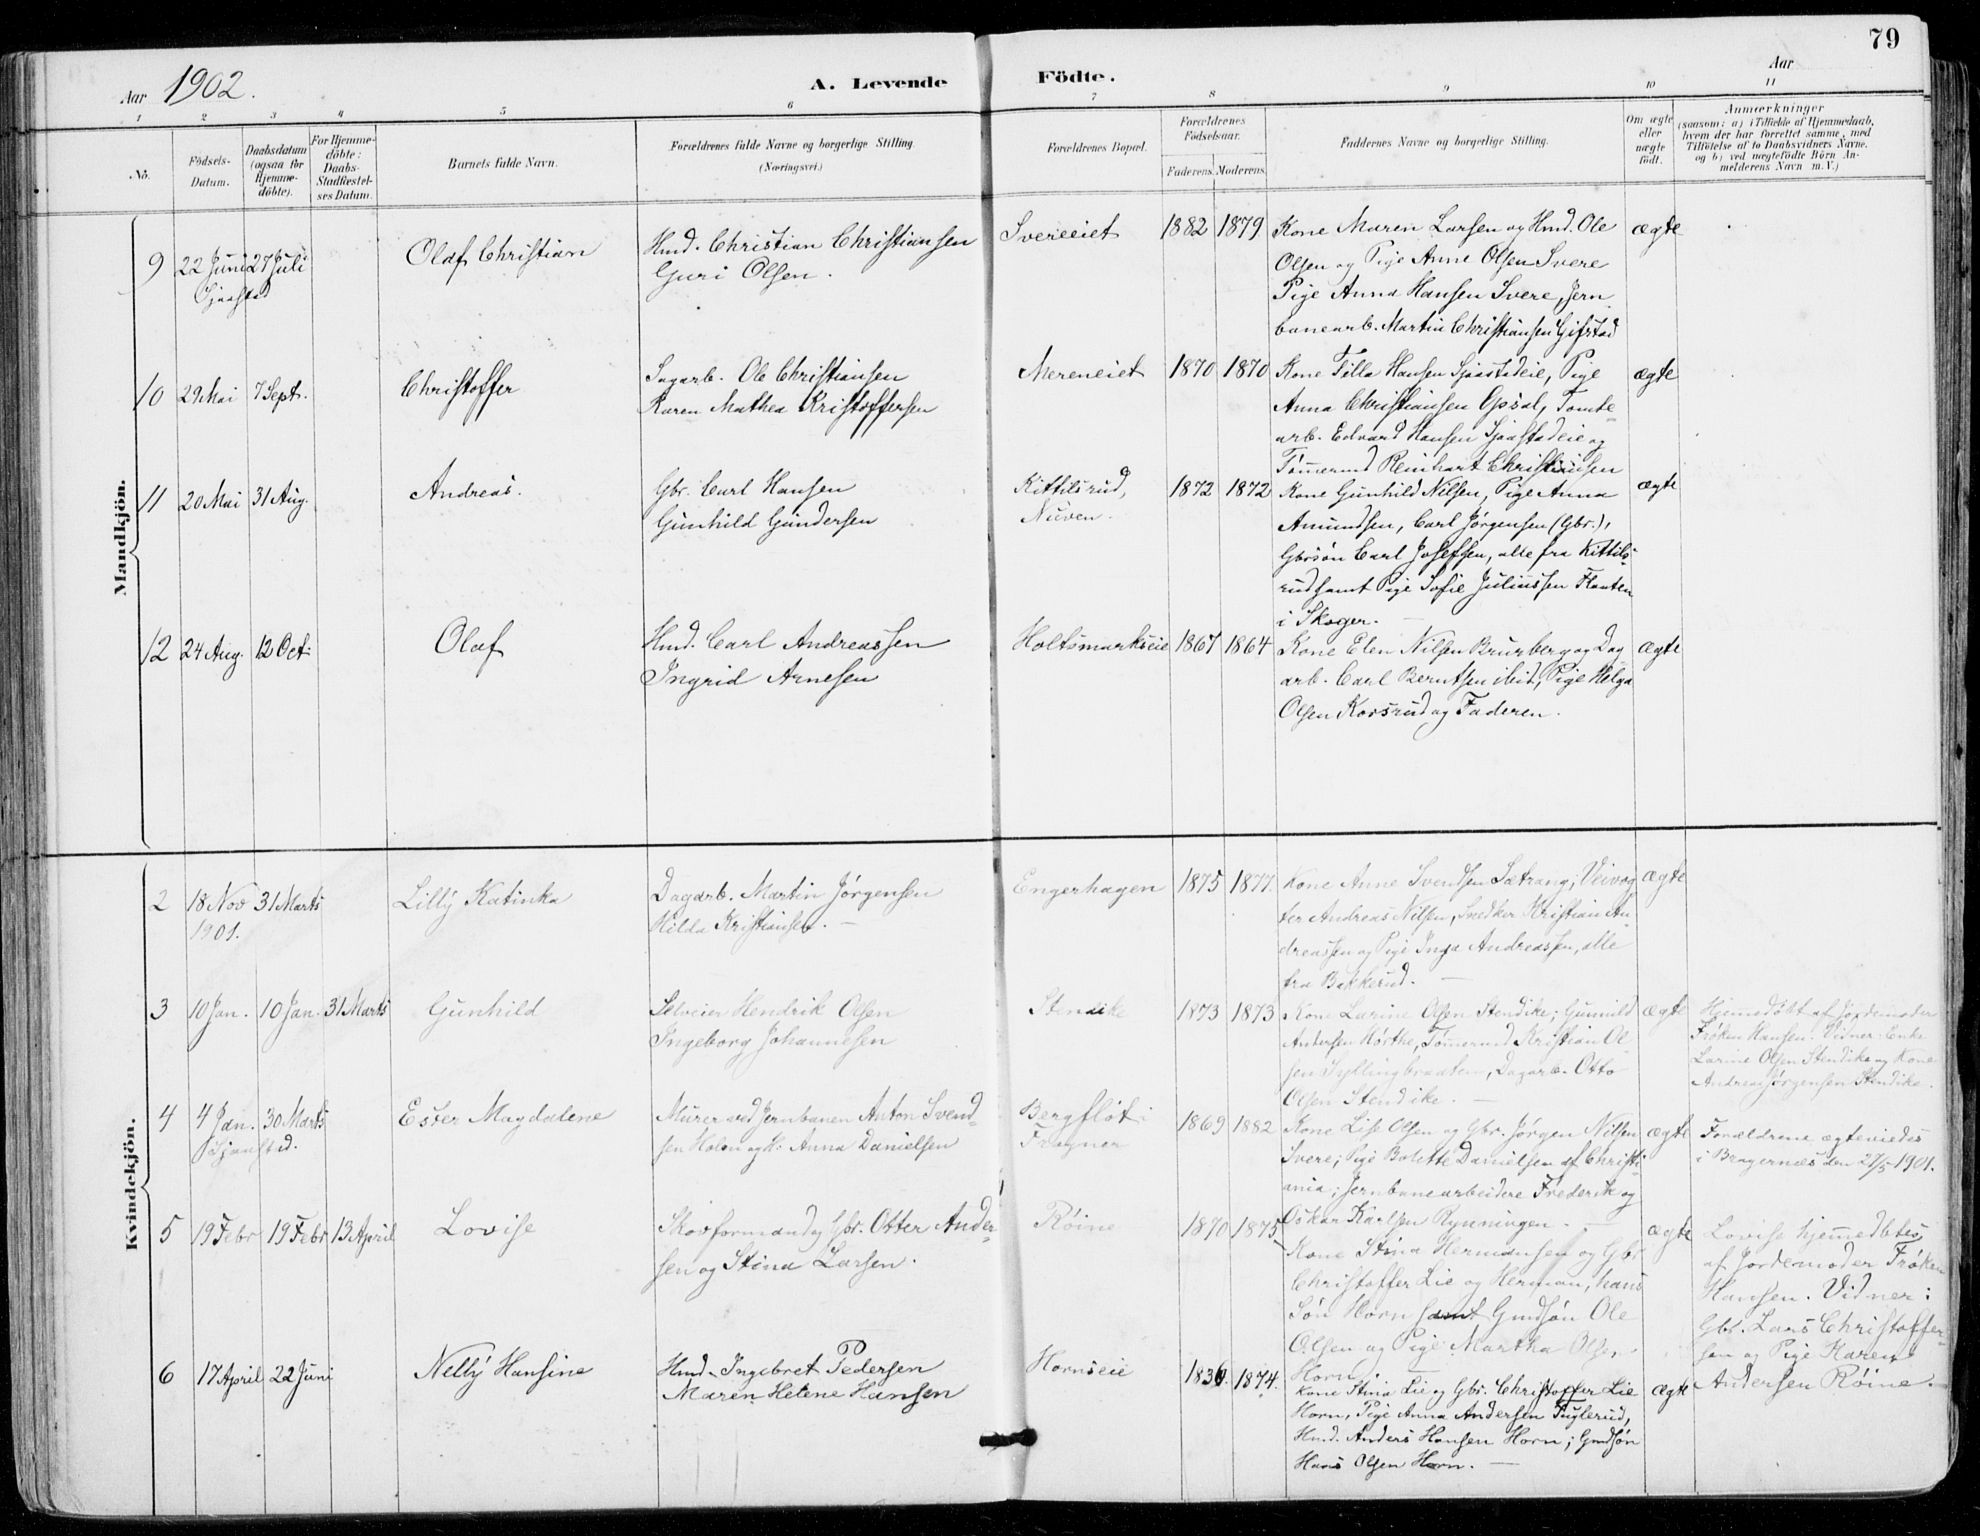 79
Aar 1902.
A. Levende Födte.
Aar
1 2 3 4 5 6 7 8 9 10 11
No.
Födsels-
Datum.
Daabsdatum
(ogsaa for
Hjemme-
döbte).
For Hjemme-
döbte:
Daabs-
Stadfæstel-
ses Datum.
Barnets fulde Navn.
Forældrenes fulde Navne og borgerlige Stilling.
(Næringsvei.)
Forældrenes Bopæl.
Forældrenes
Födselsaar.
Faderens. Moderens.
Faddernes Navne og borgerlige Stilling.
Om ægte
eller
uægte
født.
Anmærkninger
(saasom: a) i Tilfælde af Hjemmedaab,
hvem der har forrettet samme, med
Tilföielse af to Daabsvidners Navne.
og b) ved uægtefödte Börn An-
melderens Navn m. V.)
Mandkjön.
9 22 Juni 27 Juli
Sjaastad
Olaf Christian
Hmd. Christian Christiansen
Guri Olsen.
Svereeiet
1882 1879
Kone Maren Larsen og Hmd. Ole
Olsen og Pige Anne Olsen Svere
Pige Anna Hansen Svere, Jern
banearb. Martin Christiansen Gifstad
ægte
10 29 Mai 7 Sept.
Christoffer
Sagarb. Ole Christiansen
Karen Mathea Kristoffersen
Mereneiet
1870 1870
Kone Tilla Hansen Sjaastadeie, Pige
Anna Christiansen Opsal, Tomte-
arb. Edvard Hansen Sjaastadeie og
Tømmermd Reinhart Christiansen
ægte
11 20 Mai 31 Aug.
Andreas.
Gbr. Carl Hansen
Gunhild Gundersen
Kittilsrud,
Nuven.
1872 1872
Kone Gunhild Nilsen, Pige Anna
Amundsen, Carl Jørgensen (Gbr.),
Gbrsøn Carl Josefsen, alle fra Kittils-
rud samt Pige Sofie Juliussen Flaaten
i Skoger.
ægte
12 24 Aug. 12 Oct.
Olaf
Hmd. Carl Andreassen
Ingrid Arnesen
Holtsmarkseie
1867 1864
Kone Elen Nilsen Brurberg og Dag
arb. Carl Berntsen ibid, Pige Helga
Olsen Korsrud og Faderen.
ægte
Kvindekjön.
2 18 Nov 31 Marts
1901.
Lilly Katinka
Dagarb. Martin Jørgensen
Hilda Kristiansen.
Engerhagen
1875 1877.
Kone Anne Svendsen Sætrang, Veivog
ter Andreas Nilsen, Snedker Kristian An
dreassen og Pige Inga Andreassen, alle
fra Bakkerud.
ægte
3 10 Jan. 10 Jan. 31 Marts
Gunhild
Selveier Hendrik Olsen
Ingeborg Johannesen
Stendike
1873 1873
Kone Larine Olsen Stendike; Gunnild
Andersen Hørthe, Tømmermd Kristian Ol
sen Syllingbraaten, Dagarb. Otto
Olsen Stendike.
ægte
Hjemmedøbt af Jordemoder
Frøken Hansen. Vidner: Enke
Larine Olsen Stendike og Kone
Andrea Jørgensen Stendike.
4 4 Jan. 30 Marts
Sjaastad.
Ester Magdalene
Murer ved Jernbanen Anton Svend-
sen Holen og H: Anna Danielsen
Bergfløt i
Fragner
1869 1882
Kone Lise Olsen og Gbr. Jørgen Nilsen
Svere; Pige Bolette Danielsen af Christi-
ania; Jernbanearbeidere Frederik og
Oskar Karlsen Rynningen.
ægte
Forældrene ægteviedes
i Bragernæs den 27/5 1901.
5 19 Febr 19 Febr 13 April
Lovise
Skovformand og Gbr. Otter Ander-
sen og Stina Larsen.
Røine
1870 1875
Kone Stina Hermansen og Gbr
Christoffer Lie og Herman, hans
Søn Horn samt Gmdsøn Ole
Olsen og Pige Martha Olsen
Horn
ægte
Lovise hjemmedøbtes
af Jordemoder Frøken
Hansen. Vidner:
Gbr. Lars Christoffer-
sen og Pige Karen
Andersen Røine.
6 17 April 22 Juni
Nelly Hansine
Hmd. Ingebret Pedersen
Maren Helene Hansen
Hornseie
1874.
Kone Stina Lie og Gbr. Christoffer Lie
Horn, Pige Anna Andersen Fuglerud,
Hmd. Anders Hansen Horn; Gmdsøn
Hans Olsen Horn.
ægte